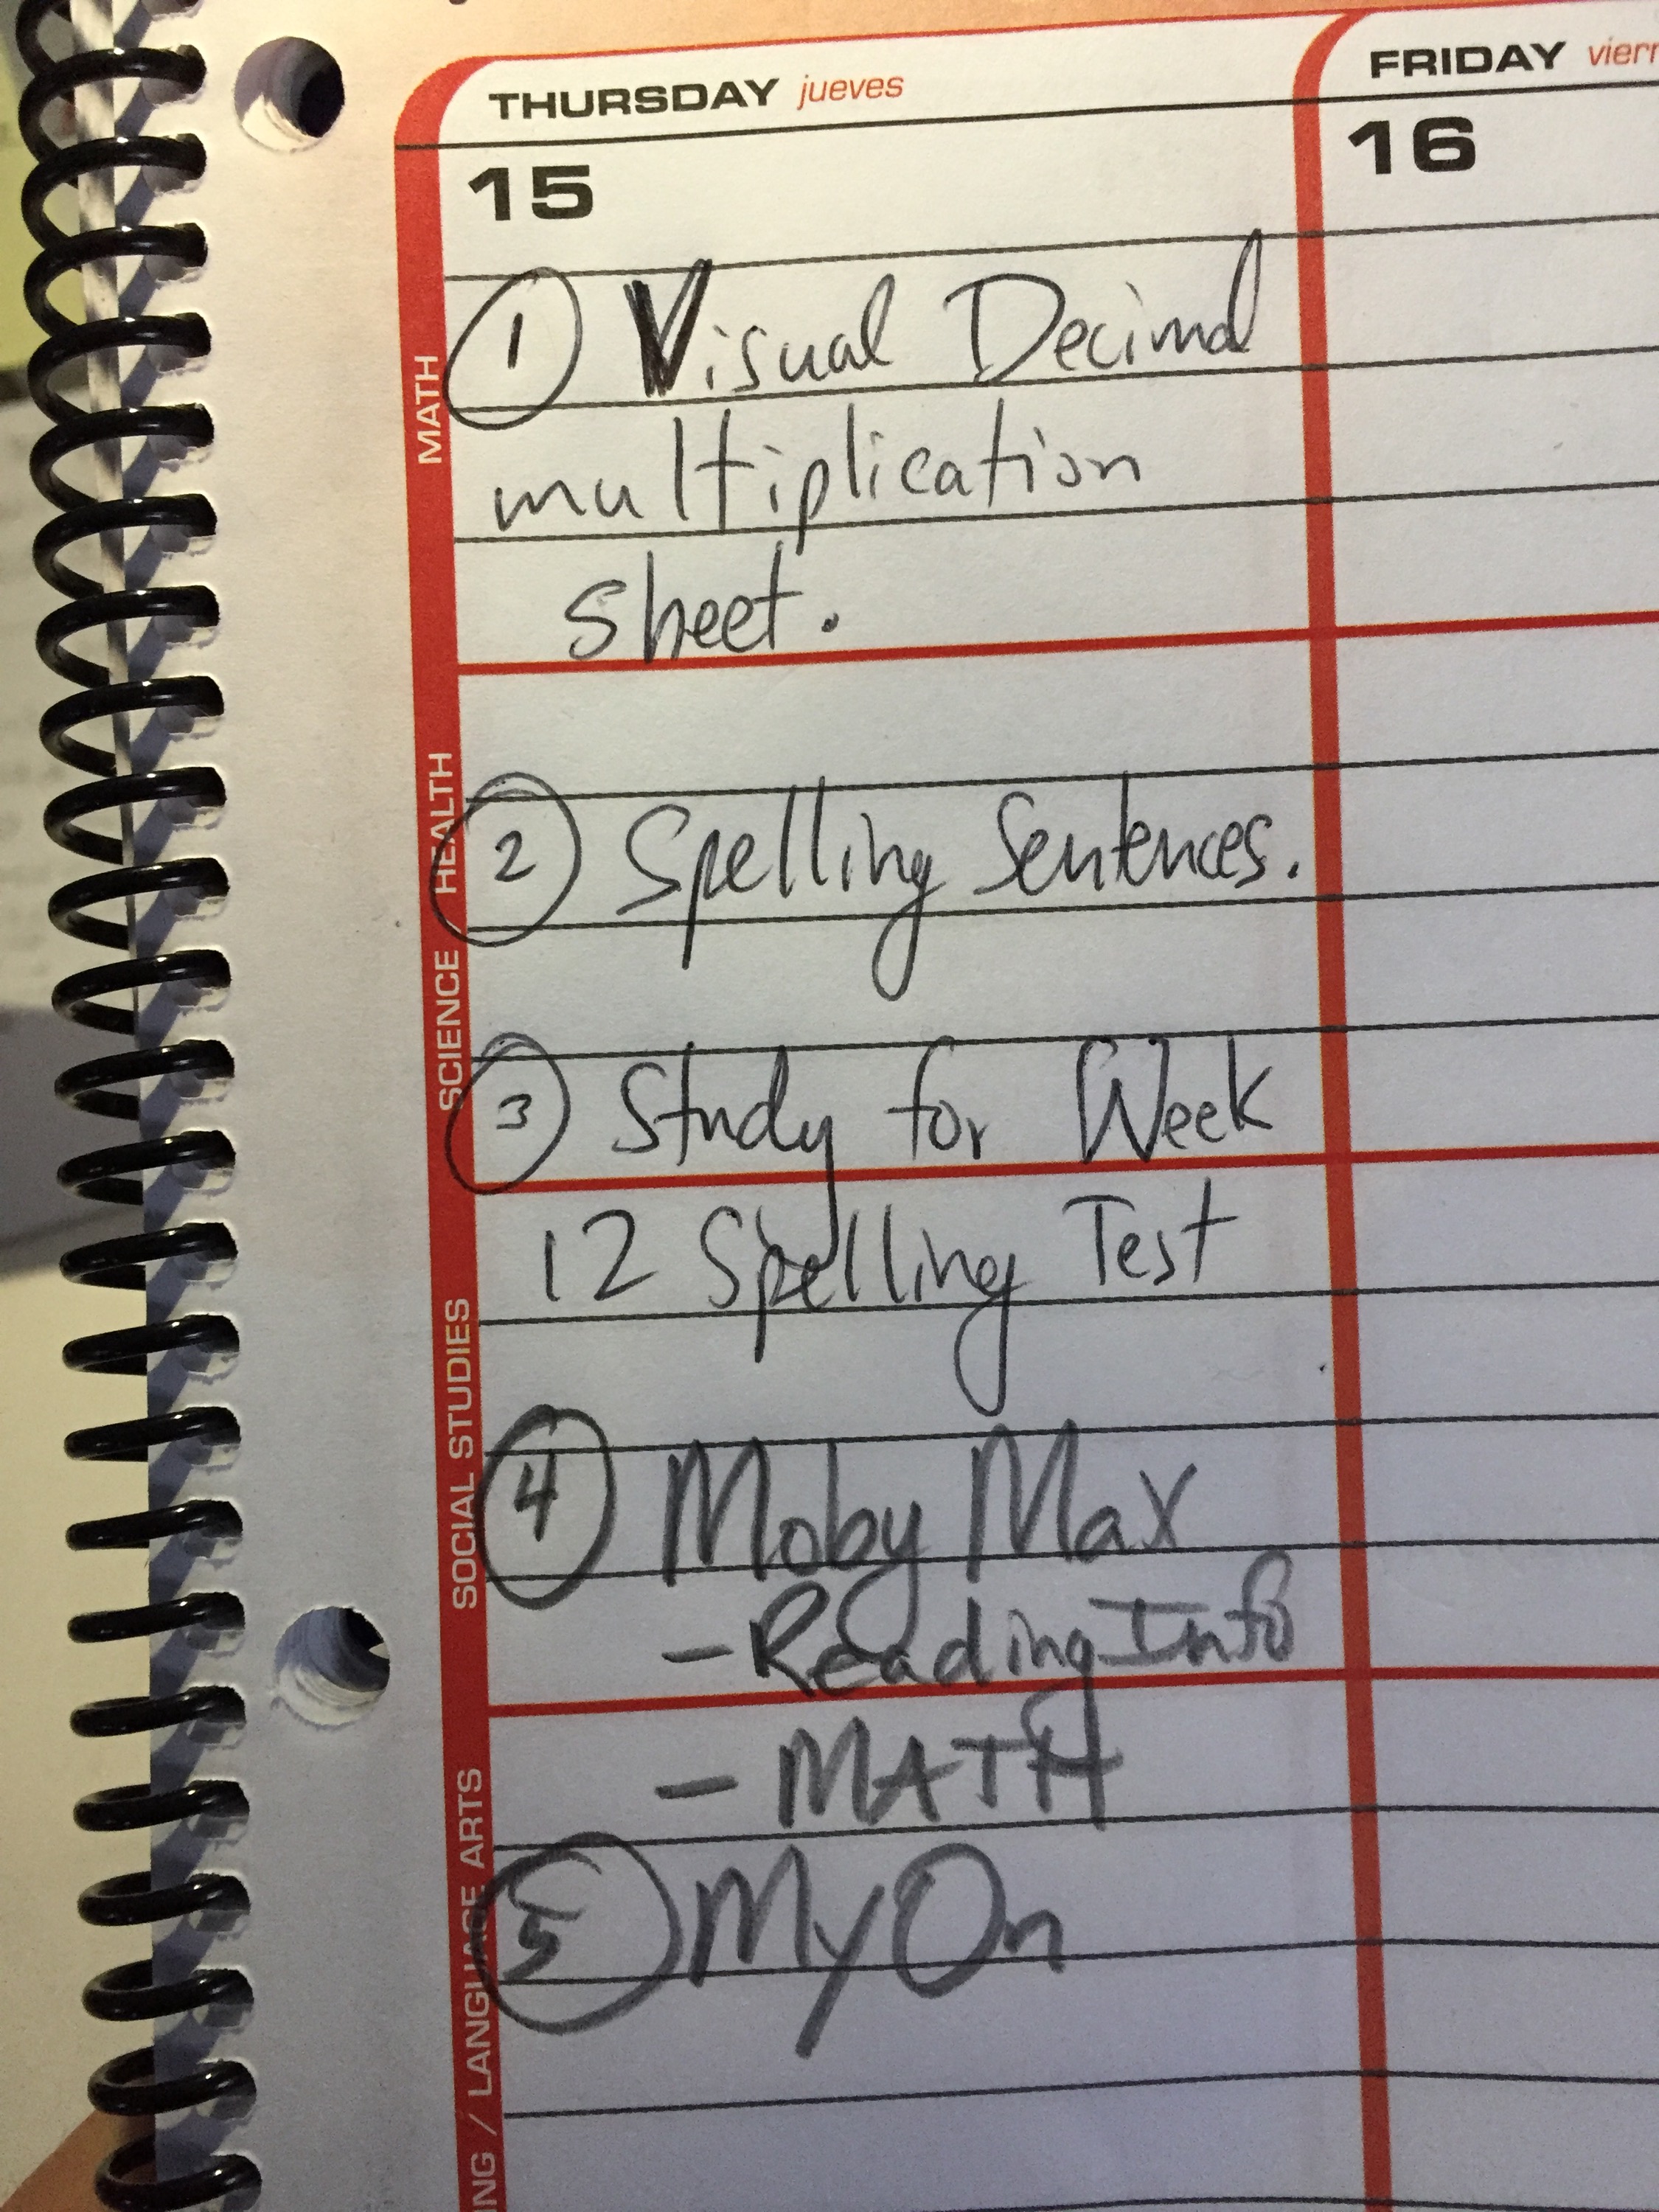 THURSDAY jueves
15
MATH
1 Visual Decimal
multiplication
sheet.
SCIENCE / HEALTH
2 Spelling Sentences.
3 Study for Week
12 Spelling Test
SOCIAL STUDIES
4 Moby Max
- Reading Info
- MATH
/ LANGUAGE ARTS
5 MyOn
FRIDAY
16